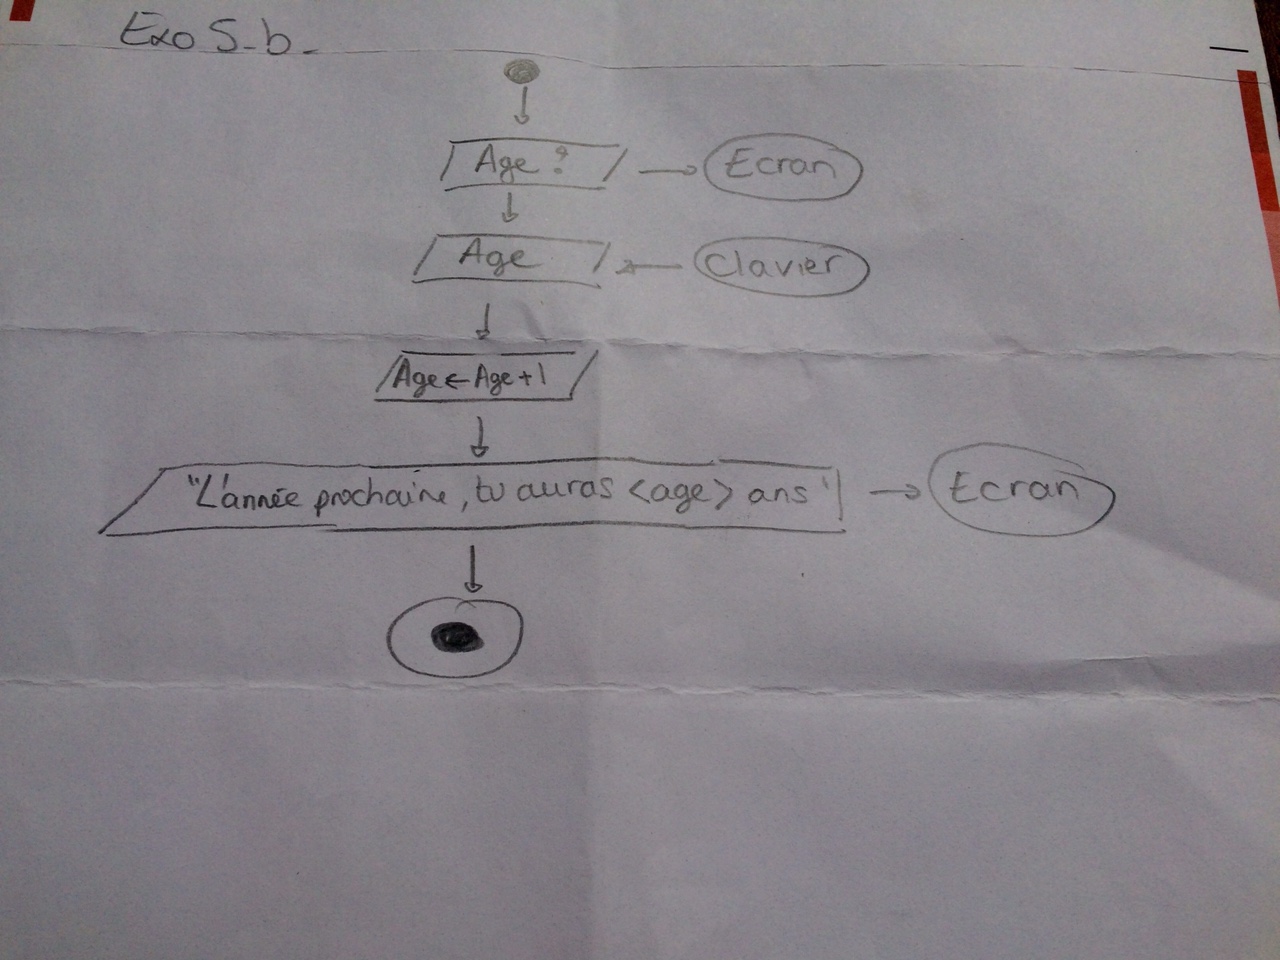 Exo 5-b-
Age ? → Ecran
Age ← Clavier
Age ← Age + 1
"L'année prochaine, tu auras <age> ans" → Ecran